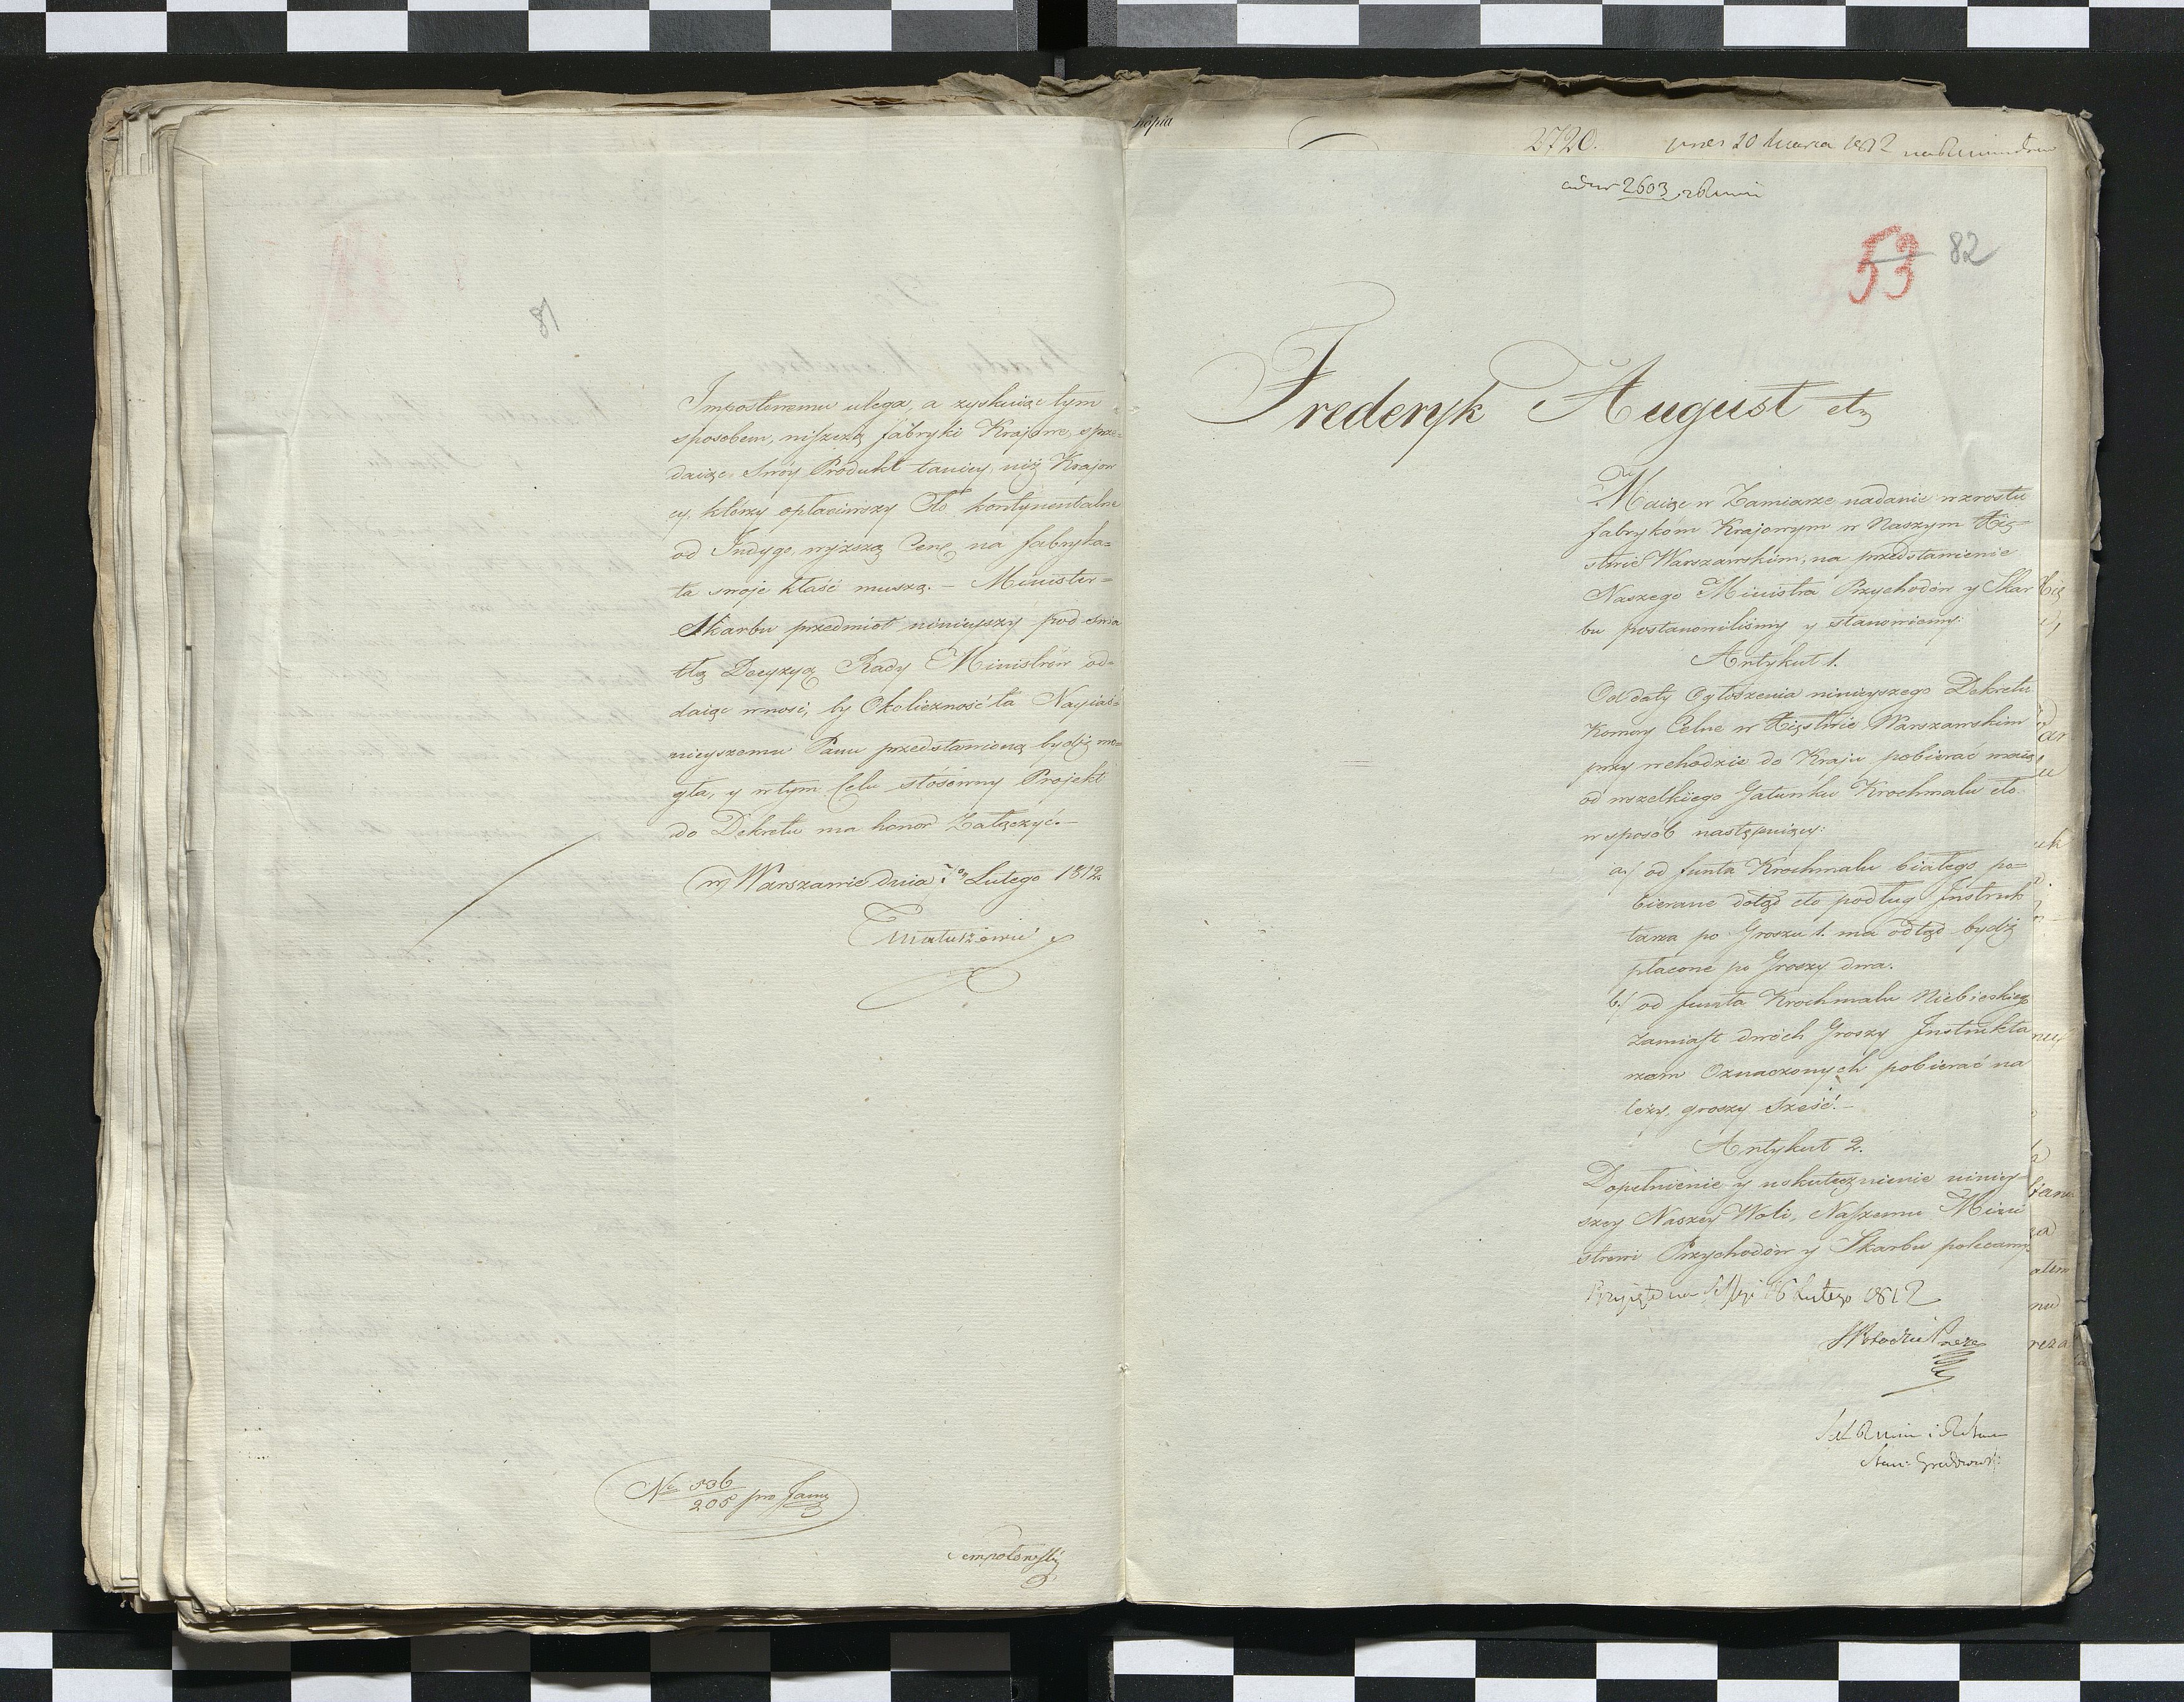 81
Impostowemu ulega, a zyskuiąc tym
sposobem, niszczą fabryki Krajowe, sprze-
daiąc Swóy Produkt taniey, niż Krajow
cy, którzy opłaciwszy Cło kontynentalne
od Indygo, wyższą Cenę na fabryka-
ta swoje kłaść muszą. – Minister
Skarbu przedmiot ninieyszy pod świa
tłą Decyzyą Rady Ministrów od-
daiąc wnosi, by Okoliczność ta Nayiaś-
nieyszemu Panu przedstawioną bydź mo-
gła, y w tym Celu stósowny Projekt
do Dekretu ma honor Załączyć. –
w Warszawie dnia Lutego 1812.
Matuszewic
No 536
205 pro
Sempołowski
kopia
2720. 20 Marca 1812
2603
53 82
Frederyk August etc
Maiąc w Zamiarze nadanie wzrostu
fabrykom Krajowym w Naszym Xię-
stwie Warszawskim, na przedstawienie
Naszego Ministra Przychodów y Skar
bu postanowiliśmy y stanowiemy:
Artykuł 1.
Od daty Ogłoszenia ninieyszego Dekretu
Komory Celne w Xięstwie Warszawskim
przy wchodzie do Kraju pobierać maią
od wszelkiego Gatunku Krochmalu cło
w sposób następuiący:
a./ od funta Krochmalu białego po-
bierane dotąd cło podług Instruk
tarza po Groszu 1. ma odtąd bydź
płacone po Groszy dwa.
b./ od funta Krochmalu Niebieskiego
Zamiast dwóch Groszy Instrukta
rzem Oznaczonych pobierać na
leży, groszy sześć. –
Artykuł 2.
Dopełnienie y uskutecznienie niniey-
szey Naszey Woli, Naszemu Mini
strowi Przychodów y Skarbu polecamy.
Przyięto na Sessyi 16 Lutego 1812